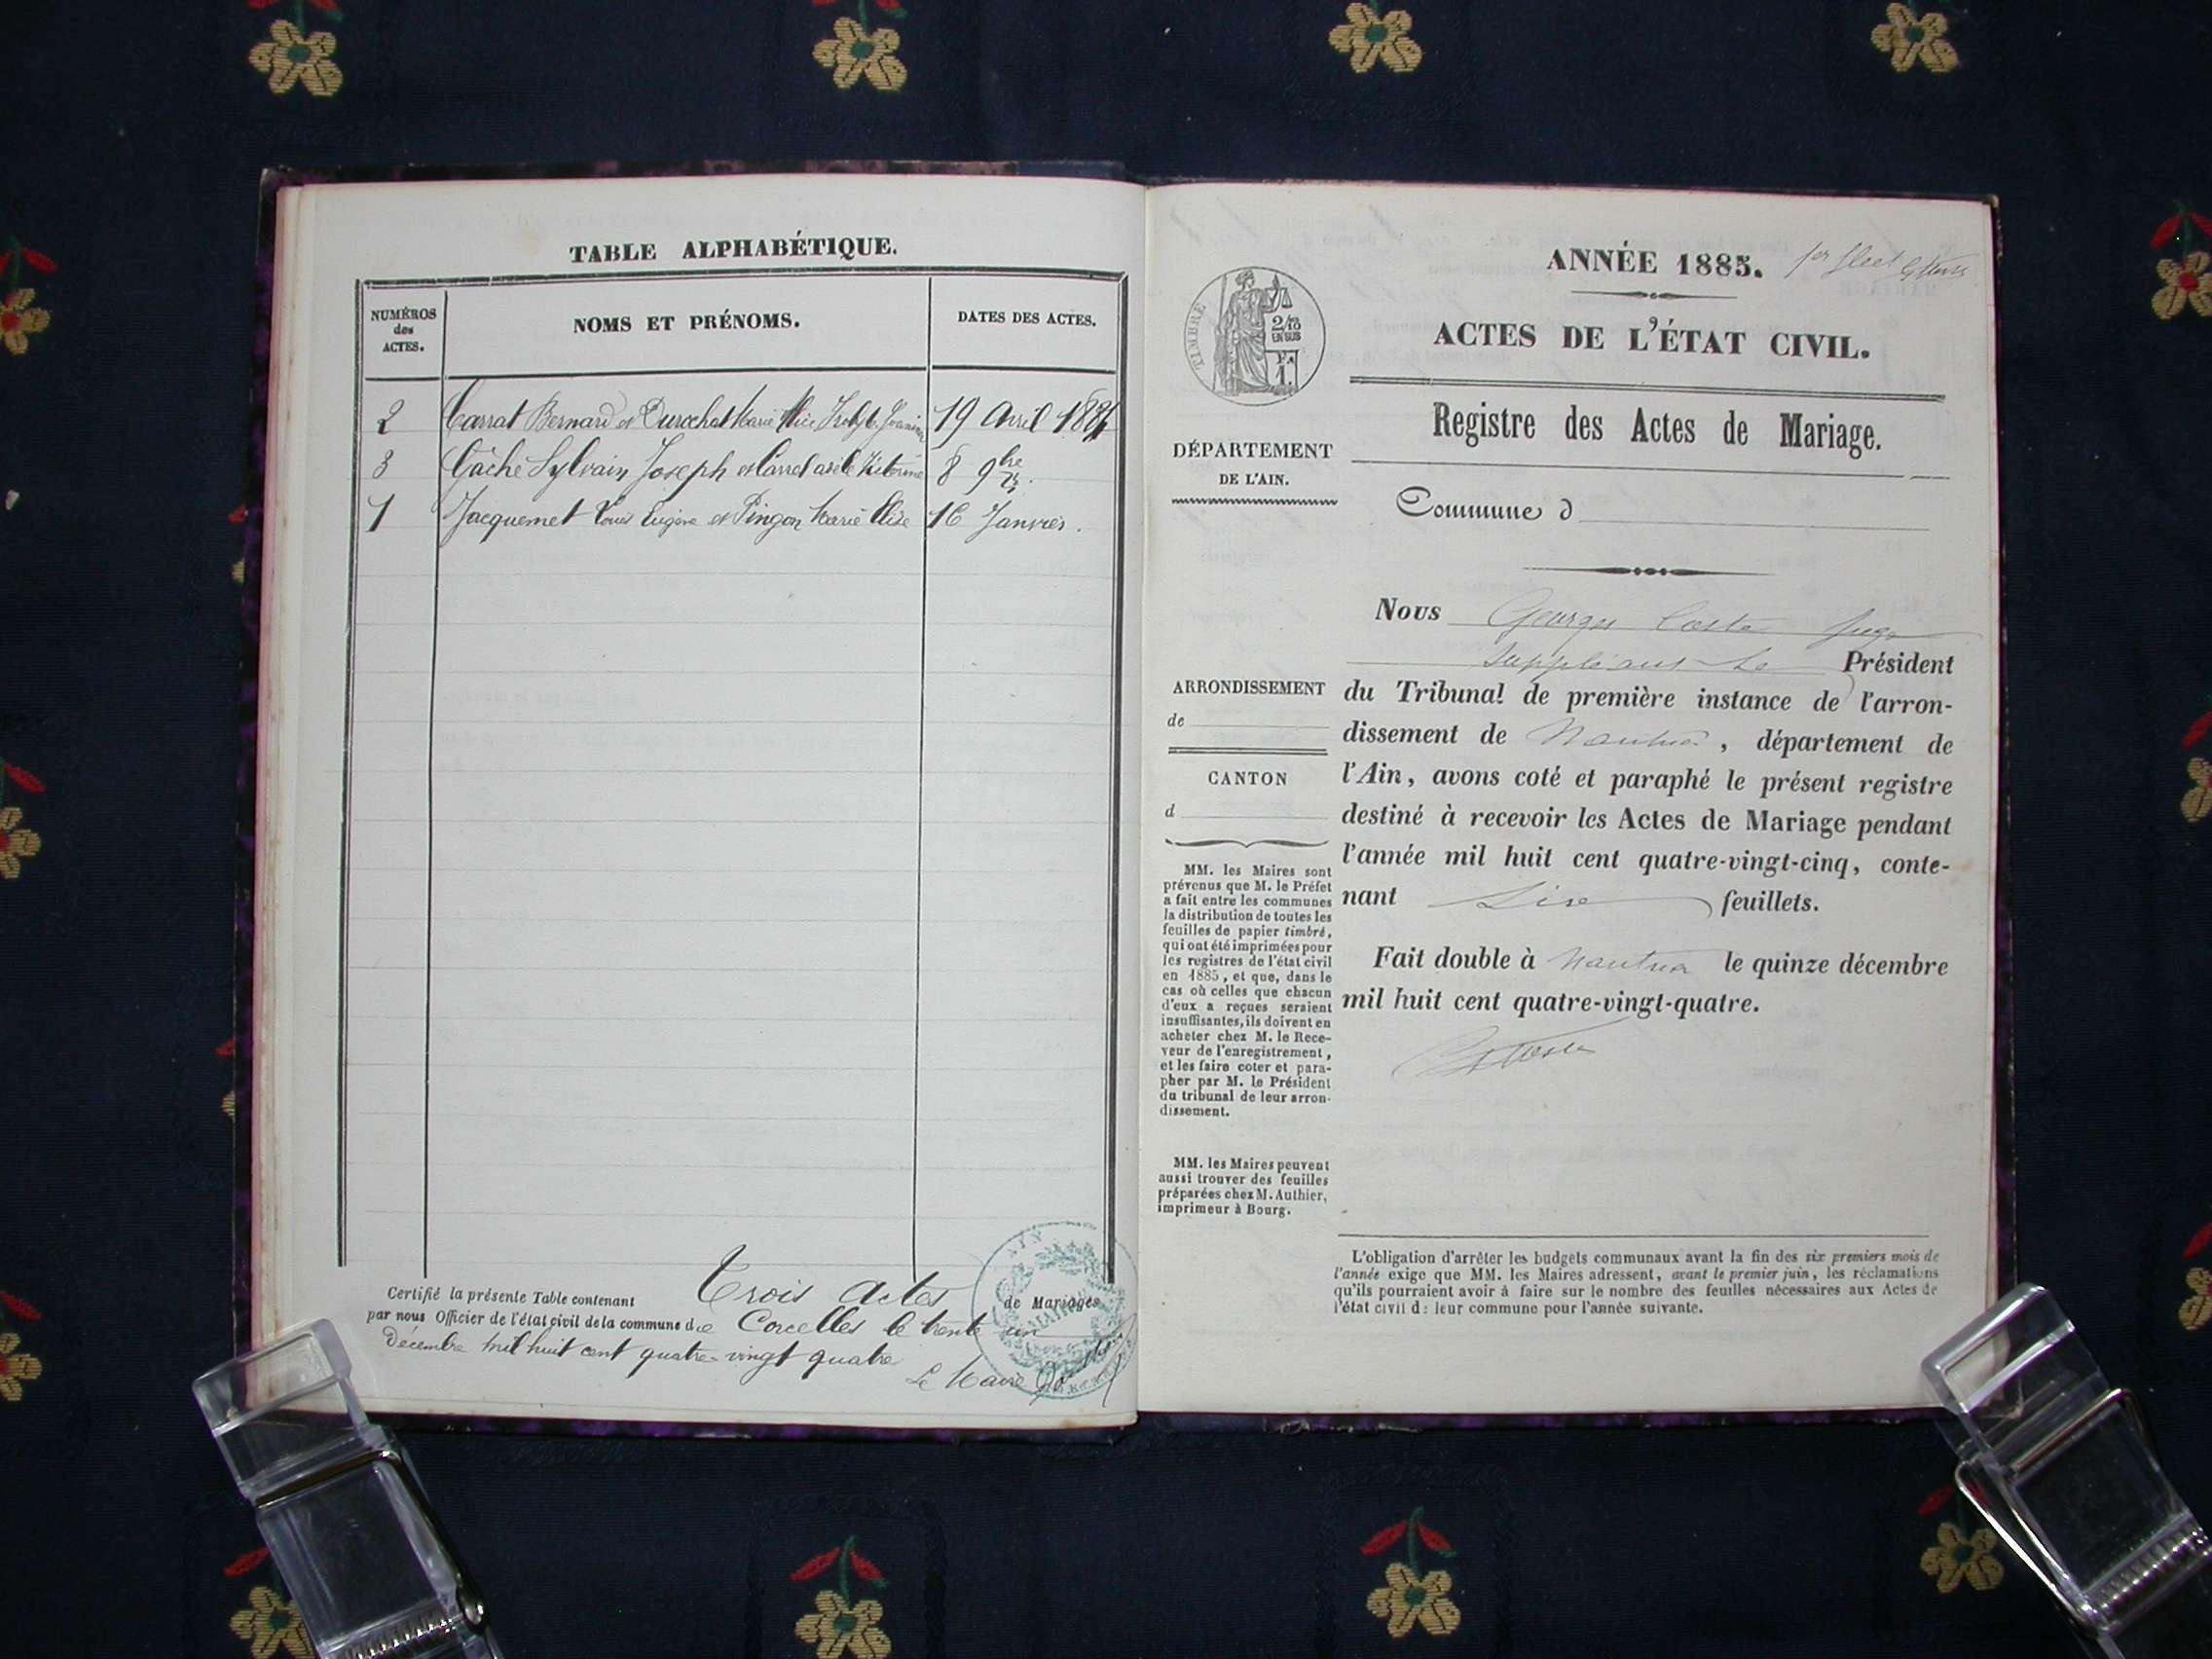 TABLE ALPHABÉTIQUE.
NUMÉROS
des
ACTES.
NOMS ET PRÉNOMS.
DATES DES ACTES.
2 Carrat Bernard et Durochat Marie 19 Avril 1884
3 Gâche Sylvain Joseph et Carrel Victorine 8 9bre
1 Jacquemet Louis Eugène et Pingon Marie Elise 16 Janvier.
Certifié la présente Table contenant Trois actes de Mariages
par nous Officier de l'état civil de la commune de Corcelles le trente un
Décembre mil huit cent quatre-vingt quatre
Le Maire
ANNÉE 1885. 1er
ACTES DE L'ÉTAT CIVIL.
TIMBRE
2/10
EN SUS
Registre des Actes de Mariage.
DÉPARTEMENT
DE L'AIN.
Commune d
Nous Georges Coste Juge
suppléant le Président
ARRONDISSEMENT
de
CANTON
d
du Tribunal de première instance de l'arron-
dissement de Nantua, département de
l'Ain, avons coté et paraphé le présent registre
destiné à recevoir les Actes de Mariage pendant
l'année mil huit cent quatre-vingt-cinq, conte-
nant Six feuillets.
Fait double à Nantua le quinze décembre
mil huit cent quatre-vingt-quatre.
MM. les Maires sont
prévenus que M. le Préfet
a fait entre les communes
la distribution de toutes les
feuilles de papier timbré,
qui ont été imprimées pour
les registres de l'état civil
en 1885, et que, dans le
cas où celles que chacun
d'eux a reçues seraient
insuffisantes, ils doivent en
acheter chez M. le Rece-
veur de l'enregistrement,
et les faire coter et para-
pher par M. le Président
du tribunal de leur arron-
dissement.
MM. les Maires peuvent
aussi trouver des feuilles
préparées chez M. Authier,
imprimeur à Bourg.
L'obligation d'arrêter les budgets communaux avant la fin des six premiers mois de
l'année exige que MM. les Maires adressent, avant le premier juin, les réclamations
qu'ils pourraient avoir à faire sur le nombre des feuilles nécessaires aux Actes de
l'état civil d: leur commune pour l'année suivante.